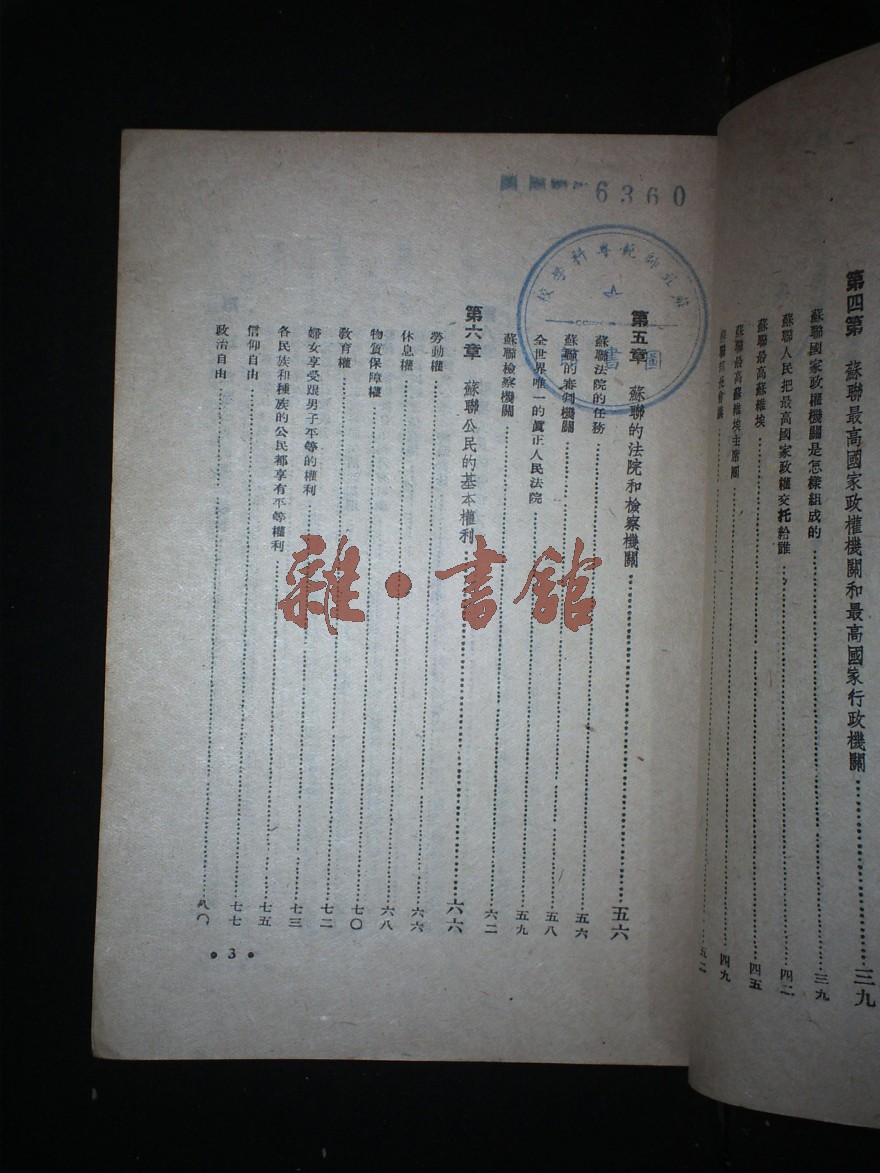 第四第 蘇聯最高國家政權機關和最高國家行政機關……三九
蘇聯國家政權機關是怎樣組成的……三九
蘇聯人民把最高國家政權交托給誰……四二
蘇聯最高蘇維埃……四五
蘇聯最高蘇維埃主席團……四九
蘇聯部長會議……五二
6360
師範專科學校
圖書
第五章 蘇聯的法院和檢察機關……五六
蘇聯法院的任務……五六
蘇聯的審判機關……五八
全世界唯一的眞正人民法院……五九
蘇聯檢察機關……六二
第六章 蘇聯公民的基本權利……六六
勞動權……六六
休息權……六八
物質保障權……七〇
敎育權……七二
婦女享受跟男子平等的權利……七三
各民族和種族的公民都享有平等權利……七五
信仰自由……七七
政治自由……八〇
• 3 •
雜·書館